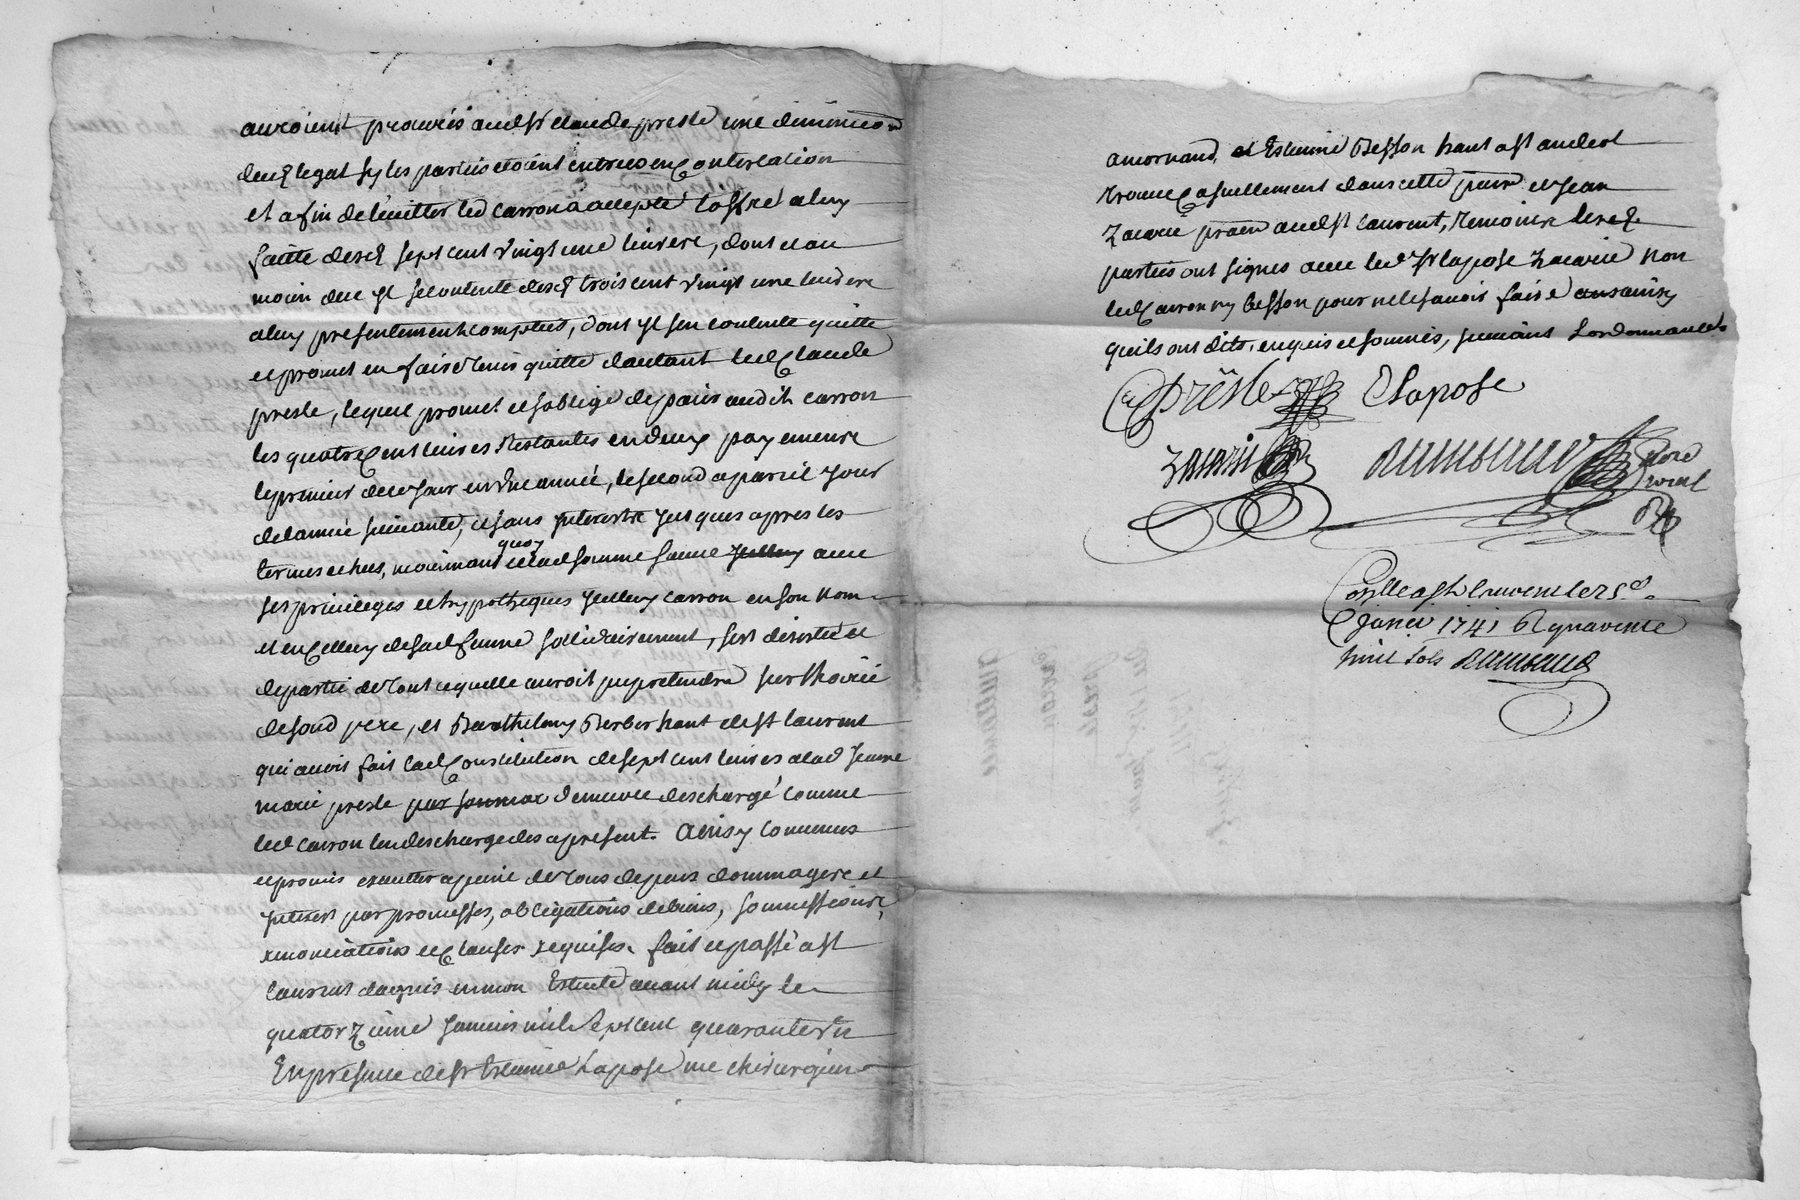 auroient procurés aud sr claude presle une diminution
dud legat sy les parties etoient entrees en Contestation
et afin de leuitter led carron a accepte loffre a luy
faitte desd sept cent vingt une liures, dont et au
moien de ce yl se contente desd trois cent vingt une liures
a luy presentement comptées, dont yl sen contente quitte
et promet en faire tenir quitte dautant led Claude
presle, lequel promet et soblige de paier audit carron
les quatre Cent liures Restantes en deux payements
le premier de ce jour en une année, le second a pareil jour
de lannée suiuante, et sans jnterestz jusques apres les
termes echus, moiennant quoy lad somme sauue auec
ses priuileges et hypotheques yceluy carron en son nom
et en Celluy de sad femme sollidairement, sest desisté et
departi de tout ce quelle auroit pu pretendre sur lhoirie
de sond pere, et Barthelemy Berber hant de st laurent
qui auoit fait lad Constitution de sept cent liures a lad Jeanne
marie presle demeure deschargé comme
led carron len descharge des apresent. Ainsy Conuenus
et promis executter a peine de tous depens dommages et
jnterests par promesses, obligations de biens, soumissions,
renonciations et Clauses requises. fait et passé a st
laurent dagnis en mon Estude auant midy le
quatorzieme januier mil sept cent quarante un
En presence de sr Estienne Laposse me chirurgien
a mornand, et Estienne Besson hant a st andeol
trouué Casuellement dans cette parr et Jean
Zacarie praen aud st laurent, temoins lesd
parties ont signes auec led sr laposse Zacarie non
led Carron ny besson pour ne le sauoir faire
quils ont dits, enquis et sommés, suiuant Lordonnance
C presle Elaposse
Zacarie
Conlle a st laurent le 25e
Januier 1741 R quarente
huit sols